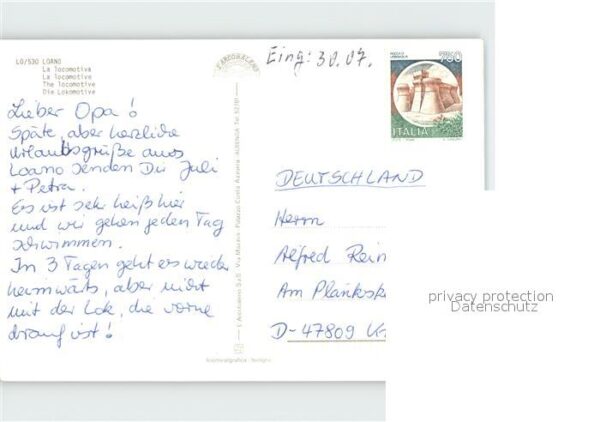 LO/530 LOANO
La locomotiva
La locomotive
The locomotive
Die Lokomotive
Lieber Opa!
Späte, aber herzliche
Urlaubsgrüße aus
Loano senden Dir Juli
+ Petra.
Es ist sehr heiß hier
und wir gehen jeden Tag
schwimmen.
In 3 Tagen geht es wieder
heimwärts, aber nicht
mit der Lok, die vorne
drauf ist!
Eing: 30.07.
750
ITALIA
DEUTSCHLAND
Herrn
Alfred Rein
Am Planks
D-47809 K
privacy protection
Datenschutz